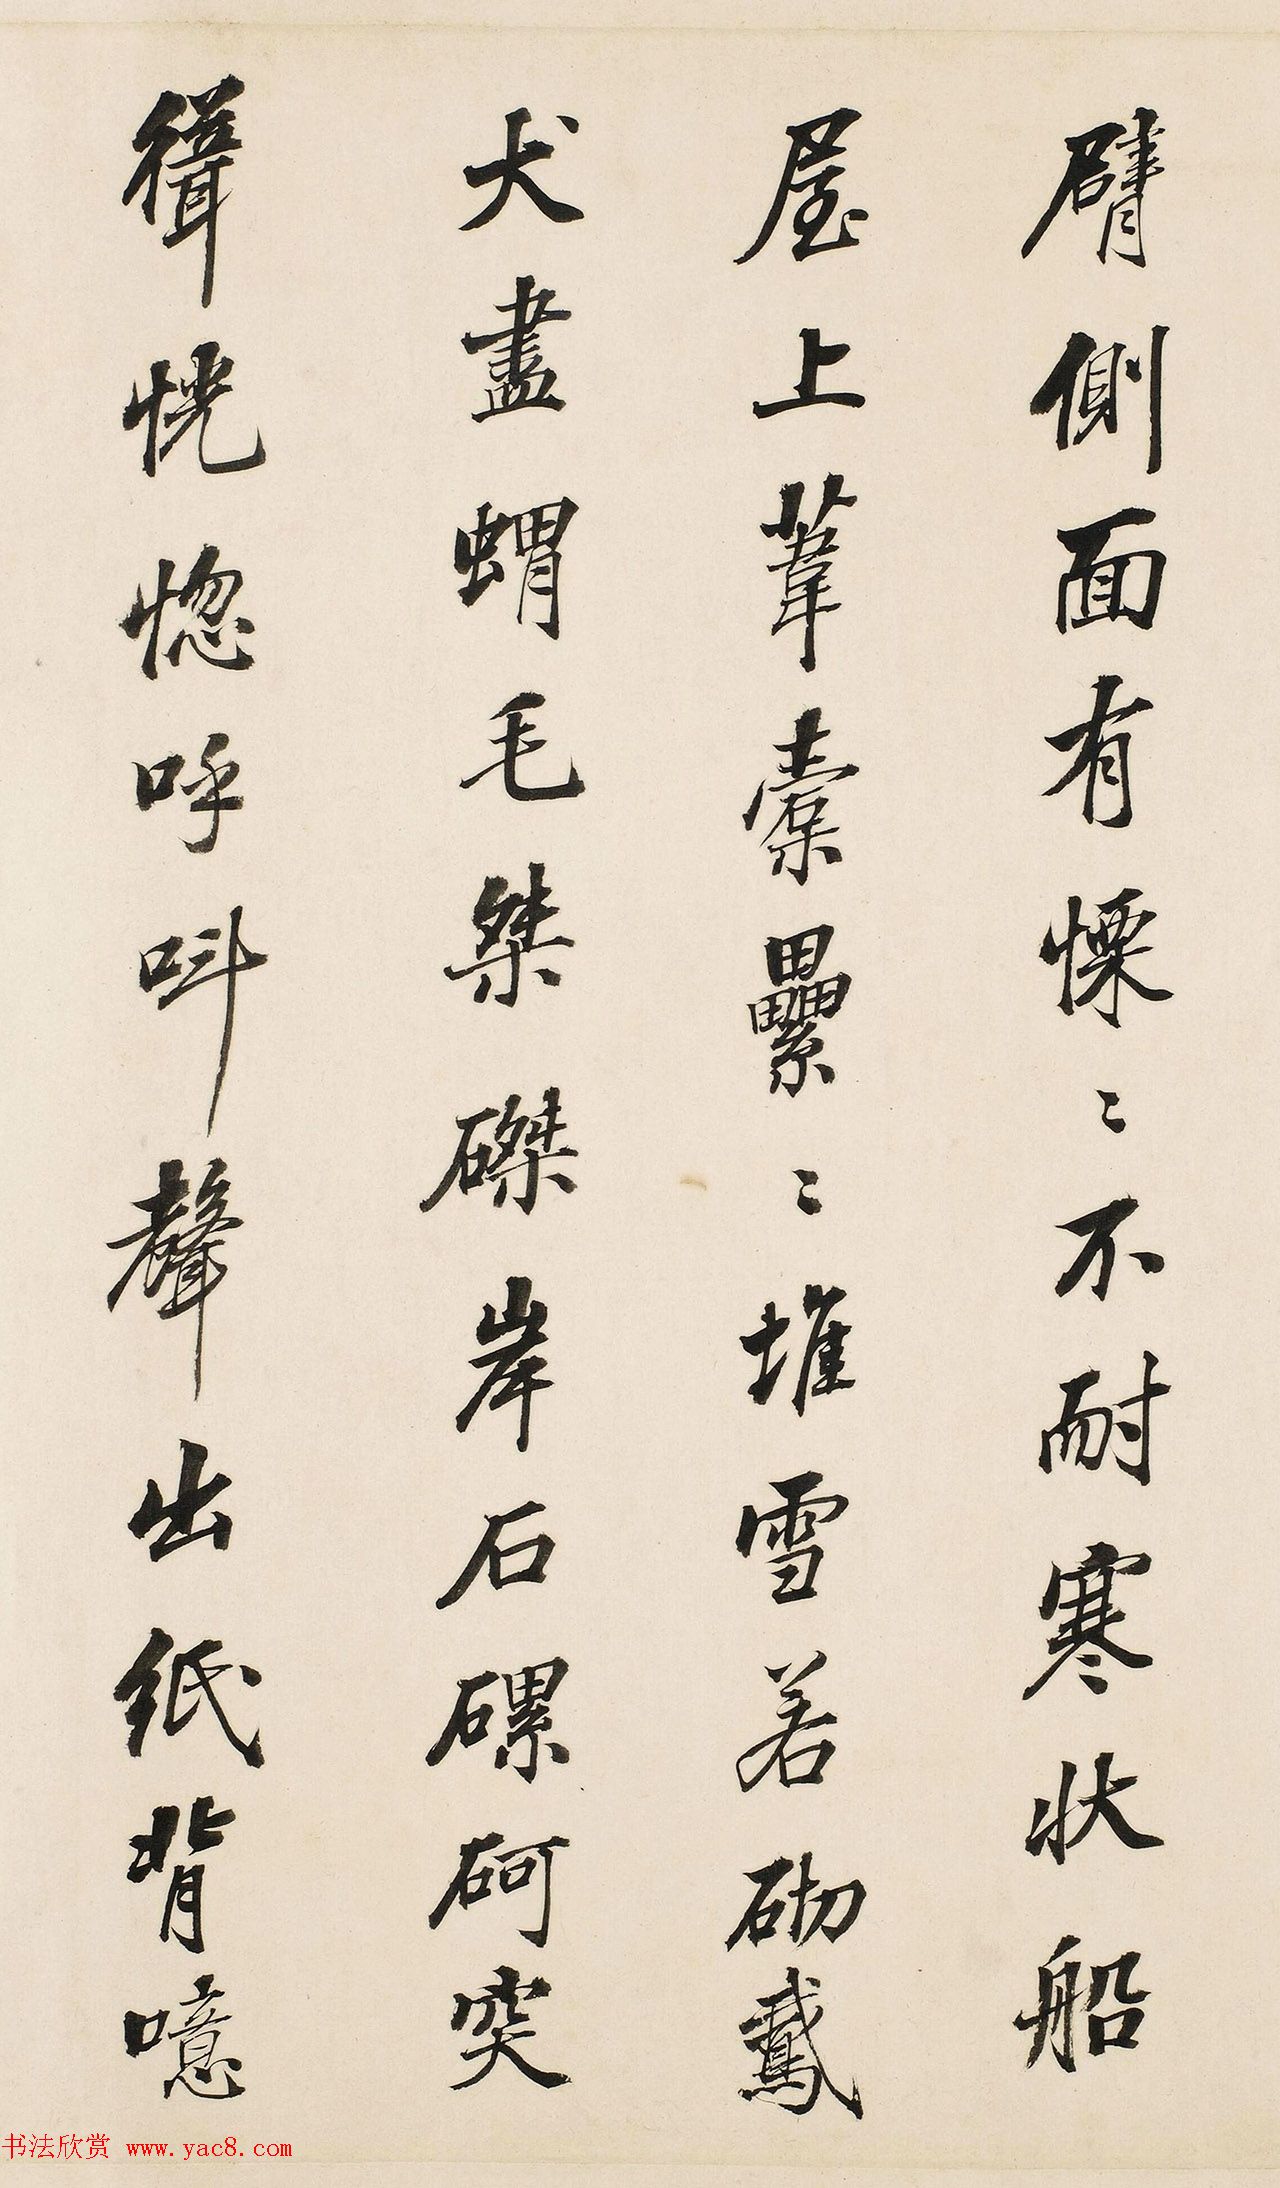 臂側面有慄〻不耐寒狀船
屋上葦橐纍〻堆雪若砌鳶
犬盡蝟毛桀磔岸石磥砢突
緝恍惚呼叫聲出紙背噫
书法欣赏 www.yac8.com